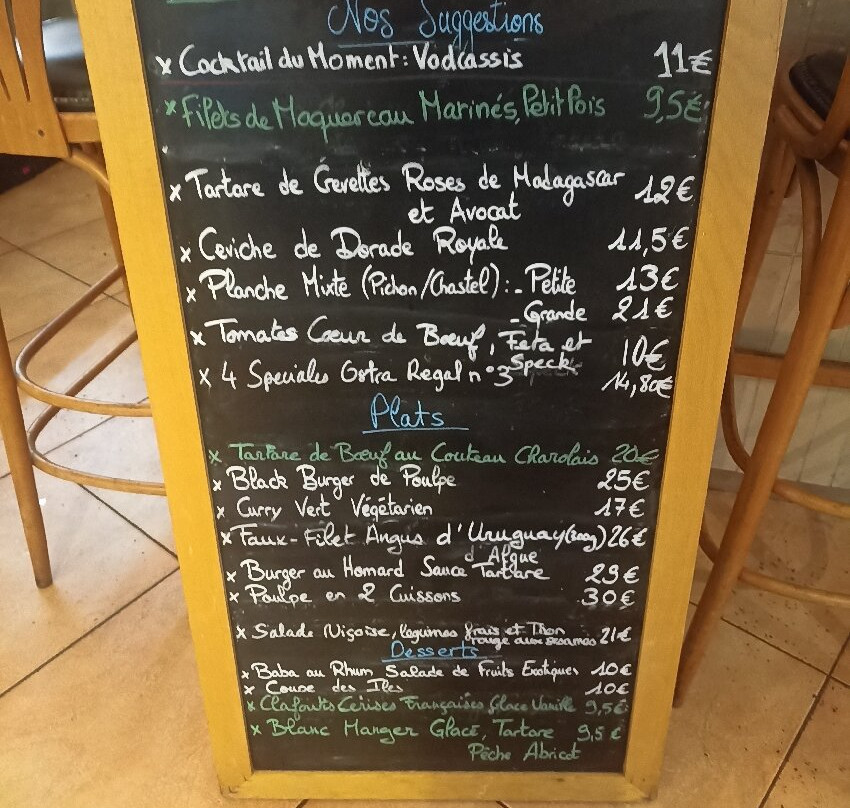 Nos Suggestions
x Cocktail du Moment: Vodcassis 11€
x Filets de Maquereau Marinés, Petit Pois 9,5€
x Tartare de Crevettes Roses de Madagascar 12€
et Avocat
x Ceviche de Dorade Royale 11,5€
x Planche Mixte (Pichon/Chastel): - Petite 13€
- Grande 21€
x Tomates Cœur de Bœuf, Feta et 10€
Speck
x 4 Speciales Ostra Regal n°3 14,80€
Plats
x Tartare de Bœuf au Couteau Charolais 20€
x Black Burger de Poulpe 25€
x Curry Vert Végétarien 17€
x Faux-Filet Angus d'Uruguay (300g) 26€
d'Algue
x Burger au Homard Sauce Tartare 29€
x Poulpe en 2 Cuissons 30€
x Salade Niçoise, legumes frais et Thon 21€
rouge aux sesames
Desserts
x Baba au Rhum Salade de Fruits Exotiques 10€
x Coupe des Iles 10€
x Clafoutis Cerises Françaises Glace Vanille 9,5€
x Blanc Manger Glacé, Tartare 9,5€
Pêche Abricot